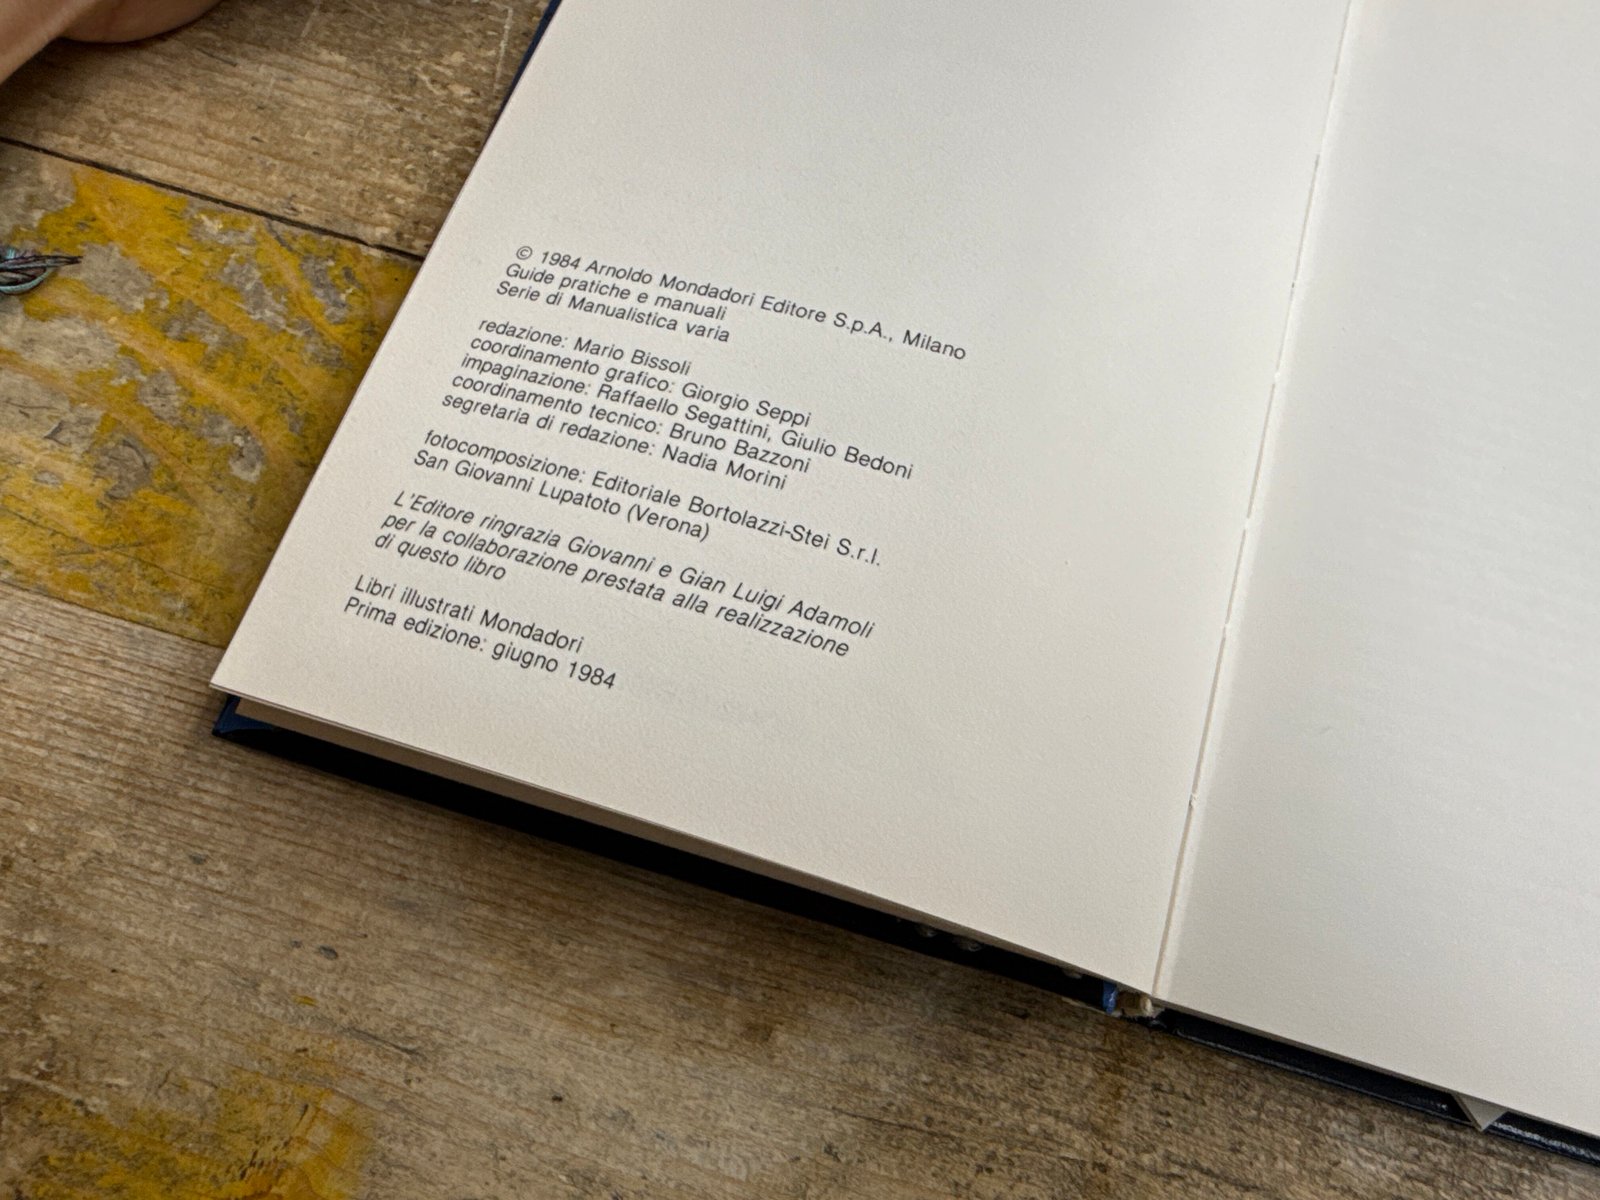 © 1984 Arnoldo Mondadori Editore S.p.A., Milano
Guide pratiche e manuali
Serie di Manualistica varia
redazione: Mario Bissoli
coordinamento grafico: Giorgio Seppi
impaginazione: Raffaello Segattini, Giulio Bedoni
coordinamento tecnico: Bruno Bazzoni
segretaria di redazione: Nadia Morini
fotocomposizione: Editoriale Bortolazzi-Stei S.r.l.
San Giovanni Lupatoto (Verona)
L'Editore ringrazia Giovanni e Gian Luigi Adamoli
per la collaborazione prestata alla realizzazione
di questo libro
Libri illustrati Mondadori
Prima edizione: giugno 1984